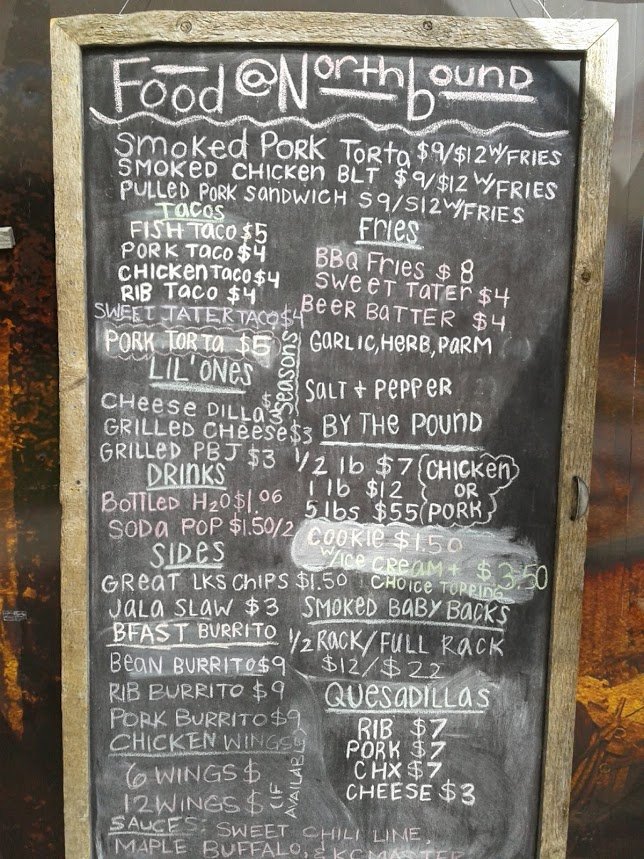 Food @ Northbound
Smoked Pork Torta $9/$12 w/Fries
Smoked Chicken BLT $9/$12 w/Fries
Pulled Pork Sandwich $9/$12 w/Fries
Tacos
Fish Taco $5
Pork Taco $4
Chicken Taco $4
Rib Taco $4
Sweet Tater Taco $4
Pork Torta $5
Lil' Ones
Cheese Dilla
Grilled Cheese $3
Grilled PBJ $3
Drinks
Bottled H2O $1.06
Soda Pop $1.50/2
Sides
Great Lks Chips $1.50
Jala Slaw $3
Bfast Burrito
Bean Burrito $9
Rib Burrito $9
Pork Burrito $9
Chicken Wings
6 Wings $
12 Wings $
(If Available)
Sauces: Sweet Chili Lime,
Maple Buffalo, & KC Master
Fries
BBQ Fries $8
Sweet Tater $4
Beer Batter $4
Seasons
Garlic, Herb, Parm
Salt + Pepper
By The Pound
1/2 lb $7
1 lb $12
5 lbs $55
(Chicken
or
Pork)
Cookie $1.50
w/Ice Cream + $3.50
Choice Topping
Smoked Baby Backs
1/2 Rack/Full Rack
$12/$22
Quesadillas
Rib $7
Pork $7
Chx $7
Cheese $3